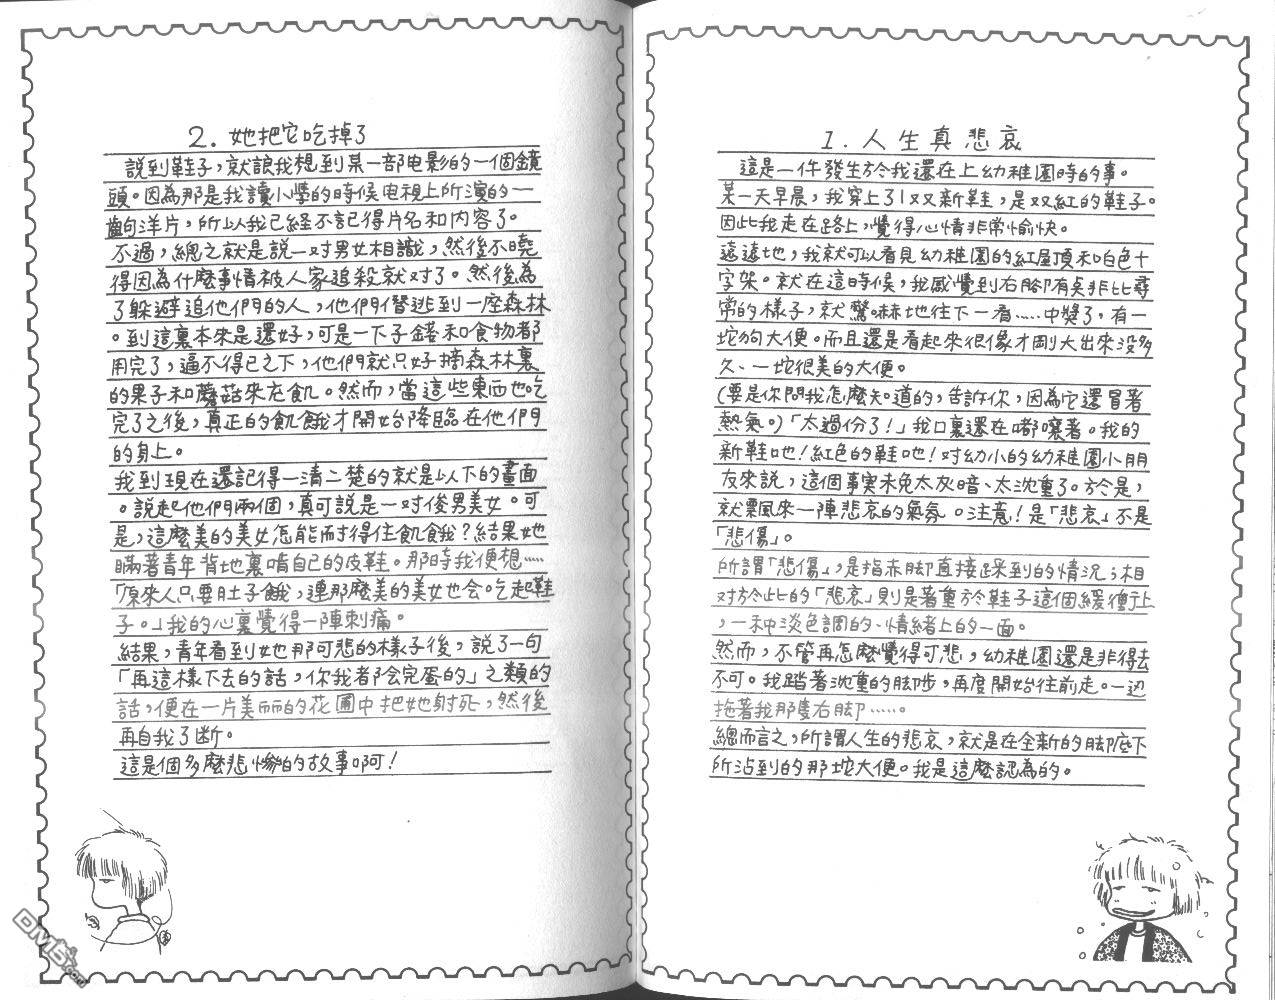 1. 人生真悲哀
這是一件發生於我還在上幼稚園時的事。
某一天早晨，我穿上了1双新鞋，是双紅的鞋子。
因此我走在路上，覺得心情非常愉快。
遠遠地，我就可以看見幼稚園的紅屋頂和白色十
字架。就在這時候，我感覺到右脚有矣非比尋
常的樣子，就驚嚇地往下一看……中獎了，有一
坨狗大便。而且還是看起來很像才剛大出來沒多
久、一坨很美的大便。
(要是你問我怎麼知道的，告訴你，因為它還冒著
熱氣。)「太過份了！」我口裏還在嘟嚷著。我的
新鞋吔！紅色的鞋吔！对幼小的幼稚園小朋
友來説，這個事実未免太灰暗、太沈重了。於是，
就飄來一陣悲哀的氣氛。注意！是「悲哀」不是
「悲傷」。
所謂「悲傷」，是指赤脚直接踩到的情況；相
对於此的「悲哀」則是著重於鞋子這個緩衝上
，一种淡色調的、情緒上的一面。
然而，不管再怎麼覺得可悲，幼稚園還是非得去
不可。我踏著沈重的脚步，再度開始往前走。一边
拖著我那隻右脚……。
總而言之，所謂人生的悲哀，就是在全新的脚底下
所沾到的那坨大便。我是這麼認為的。
2. 她把它吃掉了
説到鞋子，就讓我想到某一部电影的一個鏡
頭。因為那是我讀小學的時候电視上所演的一
齣洋片，所以我已經不記得片名和内容了。
不過，總之就是説一对男女相識，然後不曉
得因為什麼事情被人家追殺就对了。然後為
了躲避追他們的人，他們僭逃到一座森林
。到這裏本來是還好，可是一下子錢和食物都
用完了，逼不得已之下，他們就只好摘森林裏
的果子和蘑菇來充飢。然而，當這些東西也吃
完了之後，真正的飢餓才開始降臨在他們
的身上。
我到現在還記得一清二楚的就是以下的畫面
。説起他們兩個，真可説是一对俊男美女。可
是，這麼美的美女怎能耐得住飢餓？結果她
瞞著青年背地裏啃自己的皮鞋。那時我便想……
「原來人只要肚子餓，連那麼美的美女也会吃起鞋
子。」我的心裏覺得一陣刺痛。
結果，青年看到她那可悲的樣子後，説了一句
「再這樣下去的話，你我都会完蛋的」之類的
話，便在一片美丽的花圃中把她射死，然後
再自我了断。
這是個多麼悲惨的故事啊！
DM5.com